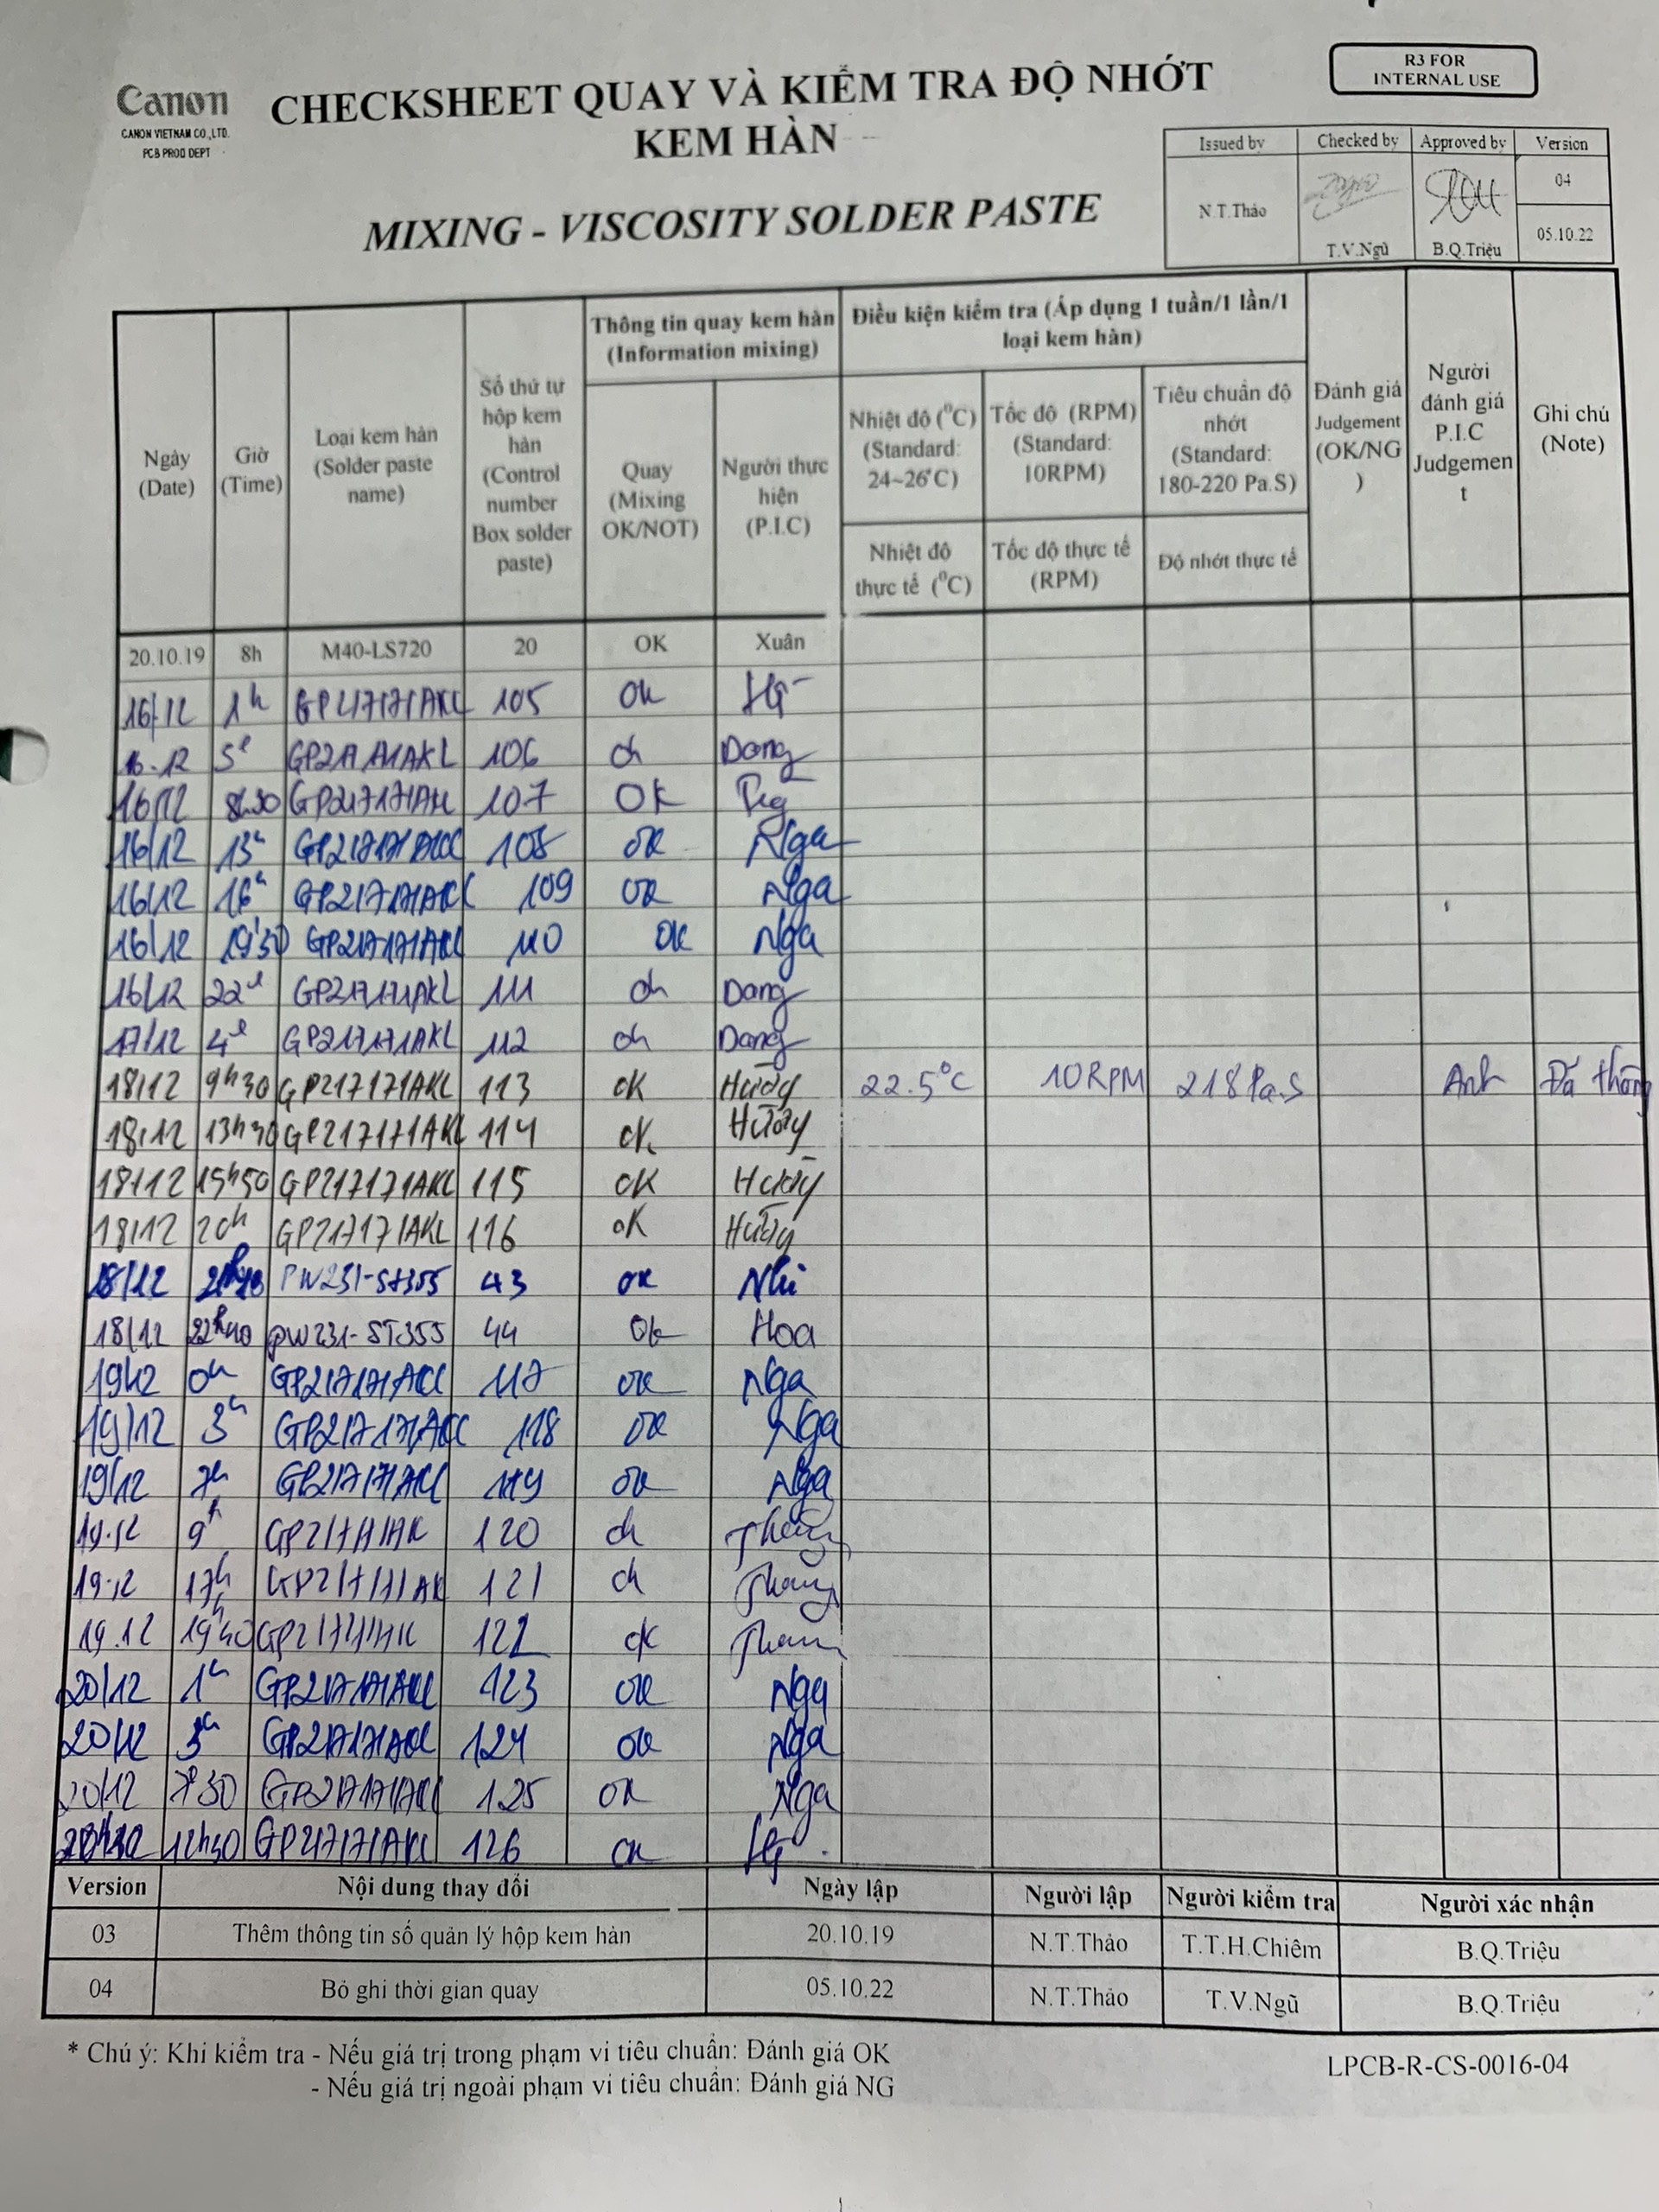 R3 FOR
INTERNAL USE
Canon
CANON VIETNAM CO.,LTD.
PCB PROD DEPT
CHECKSHEET QUAY VÀ KIỂM TRA ĐỘ NHỚT
KEM HÀN
MIXING - VISCOSITY SOLDER PASTE
Issued by Checked by Approved by Version
N.T.Thảo T.V.Ngũ B.Q.Triệu 04
05.10.22
Ngày (Date)
Giờ (Time)
Loại kem hàn (Solder paste name)
Số thứ tự hộp kem hàn (Control number Box solder paste)
Thông tin quay kem hàn (Information mixing)
Quay (Mixing OK/NOT)
Người thực hiện (P.I.C)
Điều kiện kiểm tra (Áp dụng 1 tuần/1 lần/1 loại kem hàn)
Nhiệt độ (⁰C) (Standard: 24~26⁰C)
Tốc độ (RPM) (Standard: 10RPM)
Tiêu chuẩn độ nhớt (Standard: 180-220 Pa.S)
Nhiệt độ thực tế (⁰C)
Tốc độ thực tế (RPM)
Độ nhớt thực tế
Đánh giá Judgement (OK/NG)
Người đánh giá P.I.C Judgement
Ghi chú (Note)
20.10.19 8h M40-LS720 20 OK Xuân
16/12 1h GP217171AKL 105 OK
16.12 GP217171AKL 106 Ok Dang
16/12 8h30 GP217171AKL 107 OK
16/12 13h GP217171AKL 108 OK Nga
16/12 16h GP217171AKL 109 OK Nga
16/12 19h30 GP217171AKL 110 OK Nga
16/12 22h GP217171AKL 111 Ok Dang
17/12 4h GP217171AKL 112 Ok Dang
18/12 9h30 GP217171AKL 113 OK Hường 22.5°C 10RPM 218Pa.S Anh Đá
18/12 13h30 GP217171AKL 114 OK Hường
18/12 15h50 GP217171AKL 115 OK Hường
18/12 20h GP217171AKL 116 OK Hường
18/12 PW231-ST355 43 OK Nhi
18/12 22h40 PW231-ST355 44 Ok Hoa
19/12 0h GP217171AKL 117 OK Nga
19/12 3h GP217171AKL 118 OK Nga
19/12 7h GP217171AKL 119 OK Nga
19.12 9h GP217171AK 120 Ok
19.12 17h GP217171AK 121 Ok
19.12 19h40 122 OK
20/12 1h GP217171AKL 123 OK Nga
20/12 3h GP217171AKL 124 OK Nga
20/12 7h30 GP217171AKL 125 OK Nga
20/12 12h30 GP217171AKL 126 OK
Version Nội dung thay đổi Ngày lập Người lập Người kiểm tra Người xác nhận
03 Thêm thông tin số quản lý hộp kem hàn 20.10.19 N.T.Thảo T.T.H.Chiêm B.Q.Triệu
04 Bỏ ghi thời gian quay 05.10.22 N.T.Thảo T.V.Ngũ B.Q.Triệu
* Chú ý: Khi kiểm tra - Nếu giá trị trong phạm vi tiêu chuẩn: Đánh giá OK
- Nếu giá trị ngoài phạm vi tiêu chuẩn: Đánh giá NG
LPCB-R-CS-0016-04